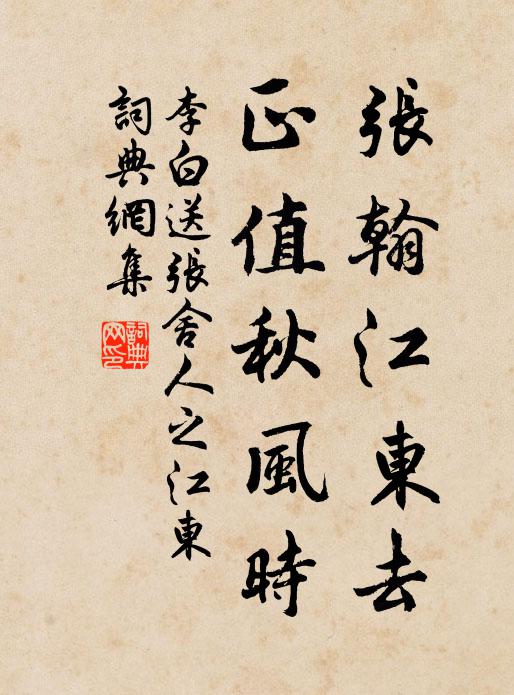 張翰江東去
正值秋風時
李白送張舍人之江東
詞典網集
詞典網印